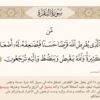 سُورَةُ البَقَرَةِ
مَّن
ذَا الَّذِي يُقْرِضُ اللَّهَ قَرْضًا حَسَنًا فَيُضَاعِفَهُ لَهُ أَضْعَافًا
كَثِيرَةً وَاللَّهُ يَقْبِضُ وَيَبْسُطُ وَإِلَيْهِ تُرْجَعُونَ